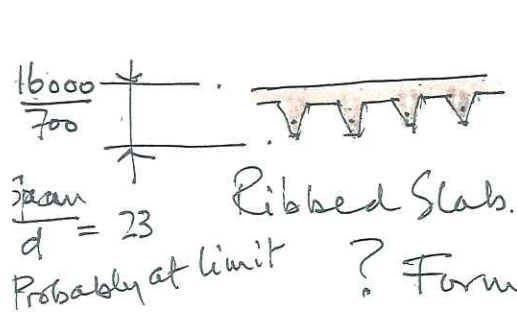 16000
700
Span
d = 23
Ribbed Slab.
Probably at limit
? Form